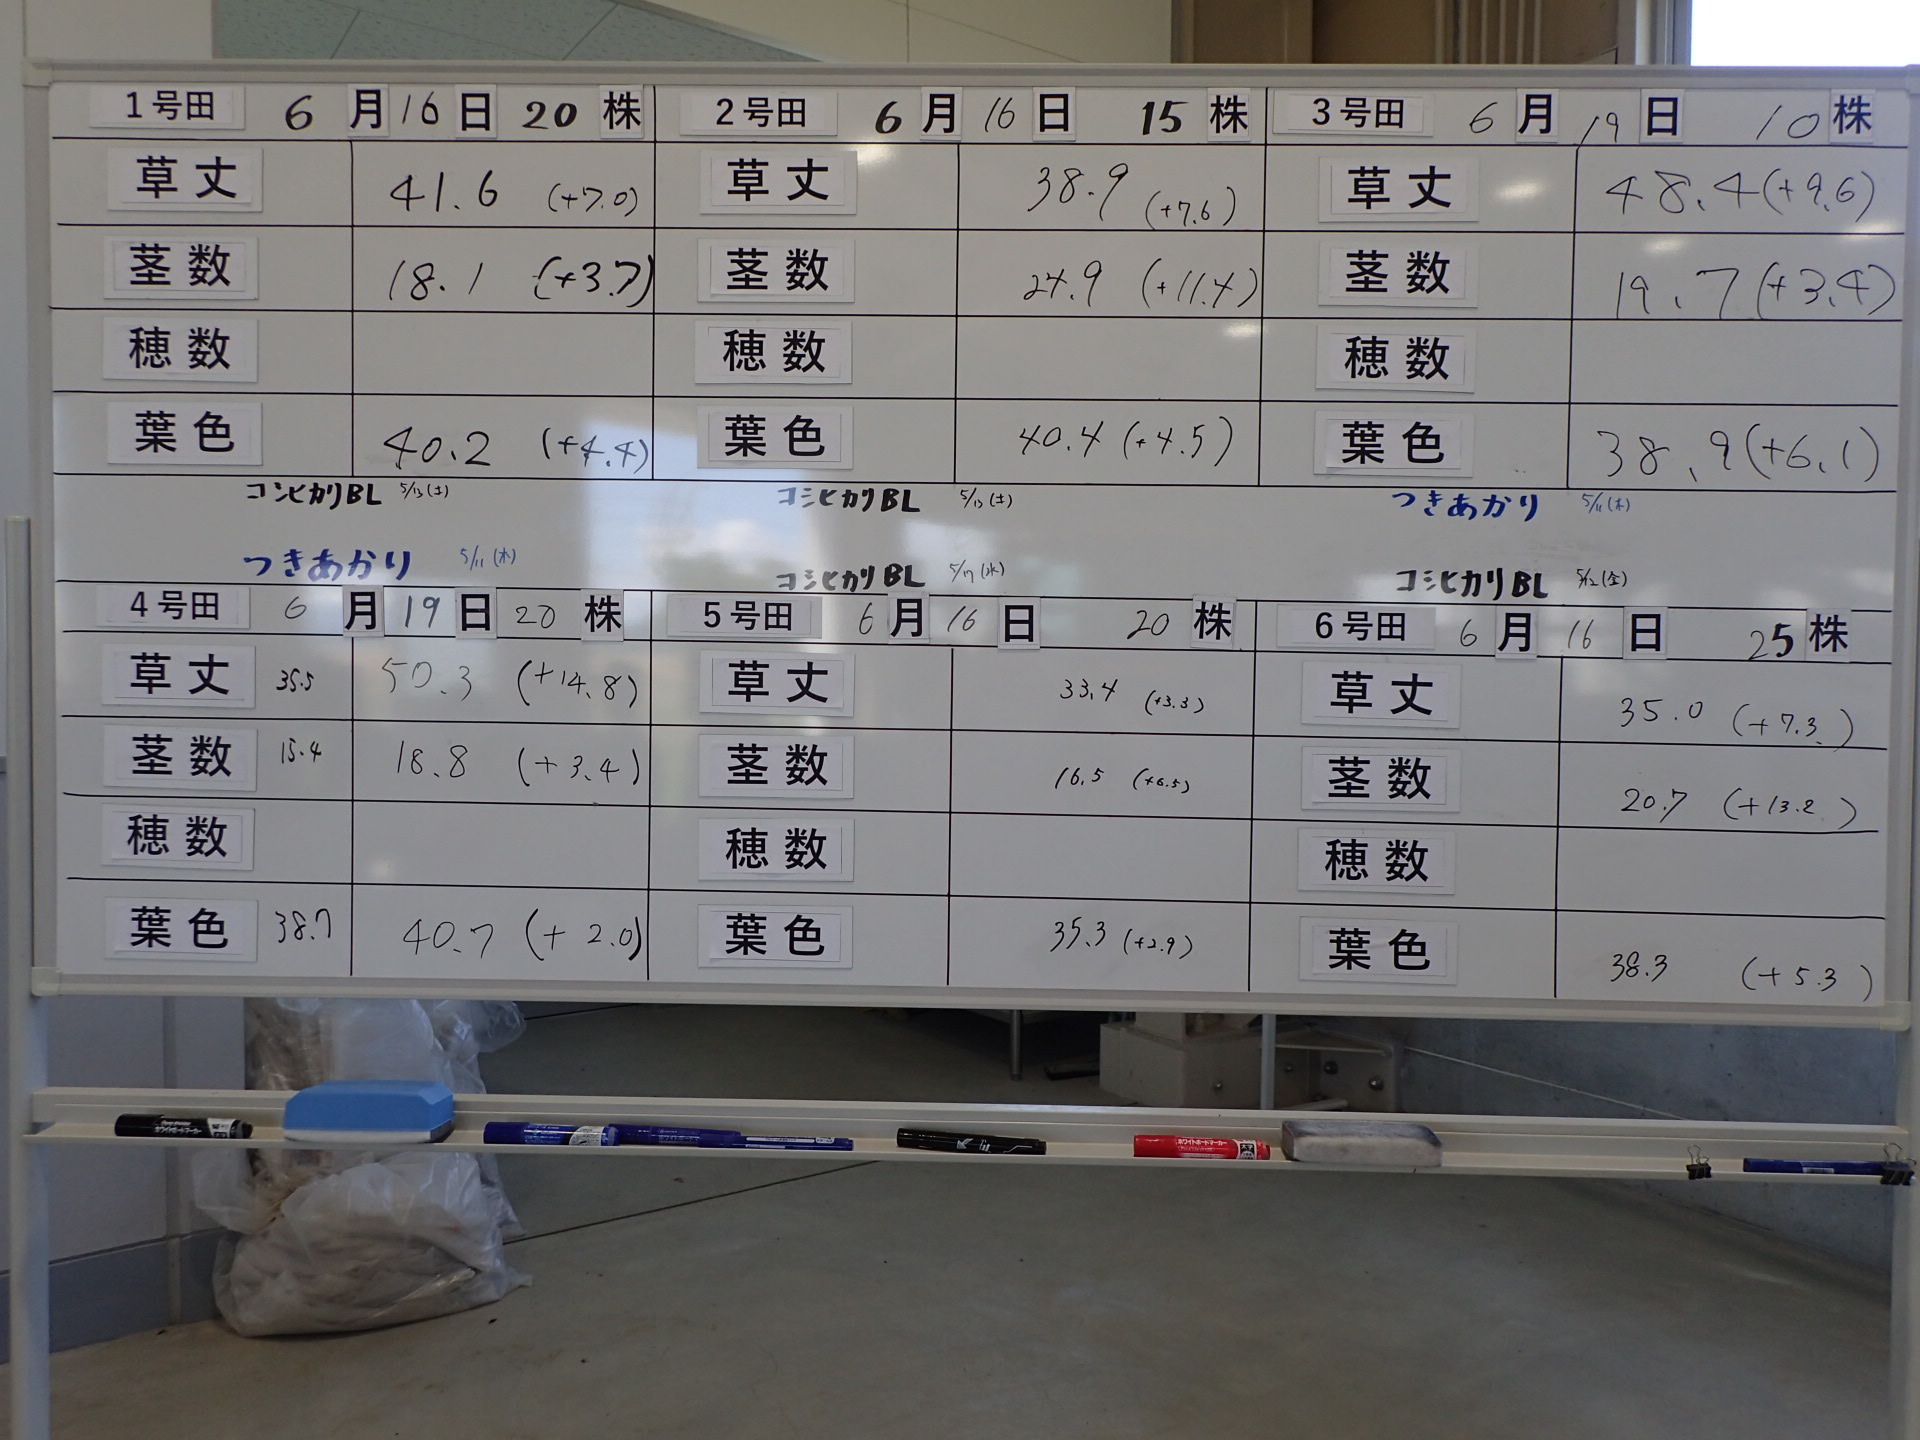 1号田 6月16日 20株
草丈 41.6 (+7.0)
茎数 18.1 (+3.7)
穂数
葉色 40.2 (+4.4)
コシヒカリBL 5/13(土)
2号田 6月16日 15株
草丈 38.9 (+7.6)
茎数 24.9 (+11.4)
穂数
葉色 40.4 (+4.5)
コシヒカリBL 5/13(土)
3号田 6月19日 10株
草丈 48.4 (+9.6)
茎数 19.7 (+3.4)
穂数
葉色 38.9 (+6.1)
つきあかり 5/11(木)
つきあかり 5/11(木)
4号田 6月19日 20株
草丈 35.5 50.3 (+14.8)
茎数 15.4 18.8 (+3.4)
穂数
葉色 38.7 40.7 (+2.0)
コシヒカリBL 5/17(水)
5号田 6月16日 20株
草丈 33.4 (+3.3)
茎数 16.5 (+6.5)
穂数
葉色 35.3 (+2.9)
コシヒカリBL 5/12(金)
6号田 6月16日 25株
草丈 35.0 (+7.3)
茎数 20.7 (+13.2)
穂数
葉色 38.3 (+5.3)
ホワイトボードマーカー
ホワイトボードマーカー